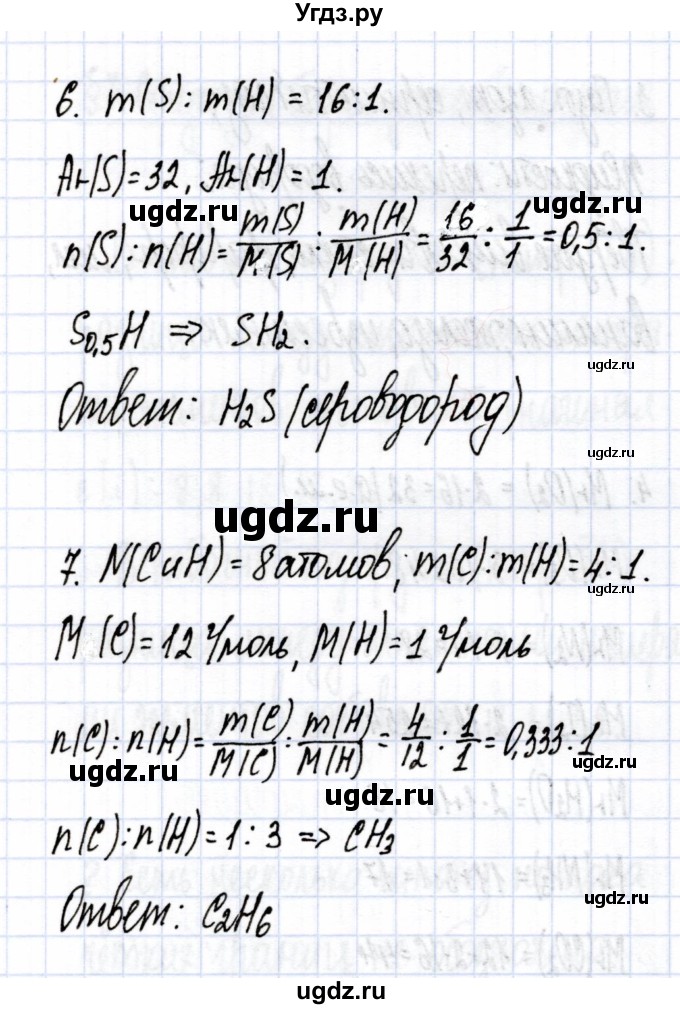 Угдз.ру
6. m(S) : m(H) = 16 : 1.
Ar(S) = 32, Ar(H) = 1.
ugdz.ru ugdz.ru
n(S) : n(H) = m(S)/M(S) : m(H)/M(H) = 16/32 : 1/1 = 0,5 : 1.
S0,5H ⇒ SH2.
ugdz.ru
Ответ: H2S (сероводород)
ugdz.ru
ugdz.ru
7. N(C и H) = 8 атомов, m(C) : m(H) = 4 : 1.
ugdz.ru
M(C) = 12 г/моль, M(H) = 1 г/моль
n(C) : n(H) = m(C)/M(C) : m(H)/M(H) = 4/12 : 1/1 = 0,333 : 1
ugdz.ru ugdz.ru ugdz.ru
n(C) : n(H) = 1 : 3 ⇒ CH3
ugdz.ru
Ответ: C2H6
ugdz.ru